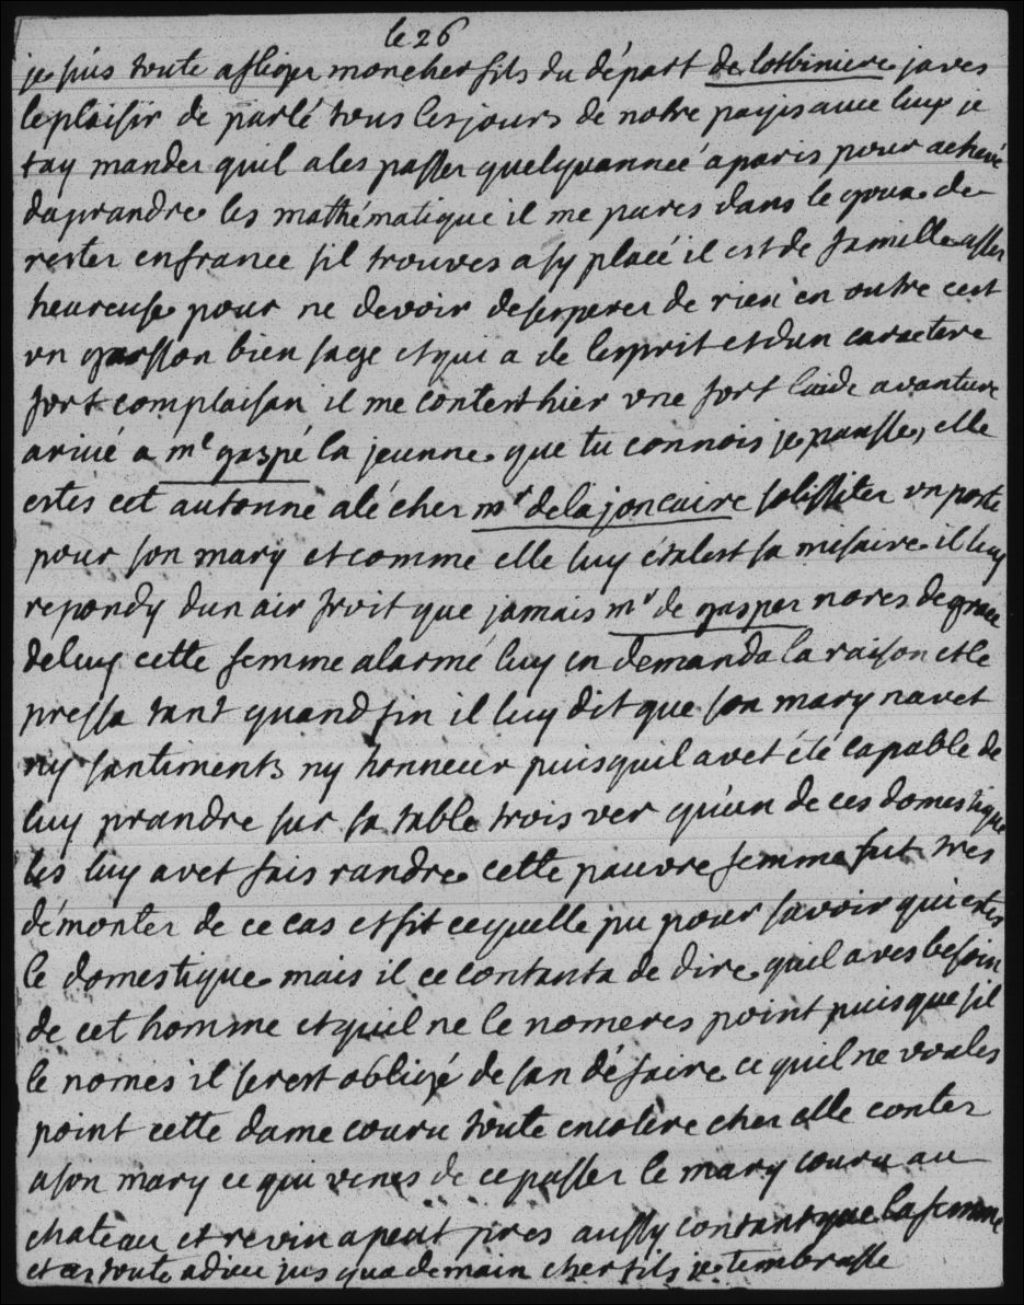 le 26
je suis toute afliger mon cher fils du départ de lotbiniere javes
le plaisir de parlé tous les jours de notre payis avec luy je
tay mander quil ales passer quelquannee a paris pour achevé
daprandre les mathématique il me pares dans le de
rester en france sil trouves a sy placé il est de famille asser
heureuse pour ne devoir desesperer de rien en outre cest
un garsson bien sage et qui a de lesprit et dun caractere
fort complaisan il me contest hier une fort laide avanture
arivé a me gaspé la jeunne que tu connois je pansse, elle
estes cet autonne alé cher mr de la joncaire solissiter un poste
pour son mary et comme elle luy étalest sa misaire il luy
repondy dun air froit que jamais mr de gasper nores de grace
de luy cette femme alarmé luy en demanda la raison et le
pressa tant quand fin il luy dit que son mary navet
ny santiments ny honneur puisquil avet été capable de
luy prandre sur sa table trois ver quun de ces domestique
les luy avet fais randre cette pauvre femme fut tres
démonter de ce cas et fit ce quelle pu pour savoir qui estes
le domestique mais il ce contanta de dire quil aves besoin
de cet homme et quil ne le nomeres point puisque sil
le nomes il serest obligé de san défaire ce quil ne voules
point cette dame couru toute en colere cher elle conter
a son mary ce qui venes de ce passer le mary couru au
chateau et revin a peut pres aussy contant que la femme
et toute adieu jus qua demain cher fils je tembrasse